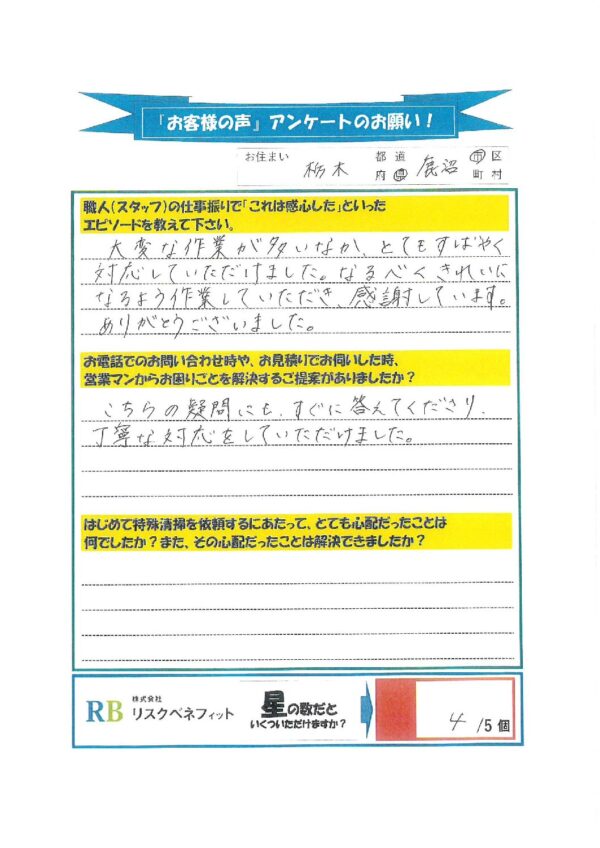 『お客様の声』アンケートのお願い！
お住まい 栃木 都道府県 鹿沼 市区町村
職人(スタッフ)の仕事振りで「これは感心した」といった
エピソードを教えて下さい。
大変な作業が多いなか、とてもすばやく
対応していただけました。なるべくきれいに
なるよう作業していただき、感謝しています。
ありがとうございました。
お電話でのお問い合わせ時や、お見積りでお伺いした時、
営業マンからお困りごとを解決するご提案がありましたか？
こちらの疑問にも、すぐに答えてくださり、
丁寧な対応をしていただけました。
はじめて特殊清掃を依頼するにあたって、とても心配だったことは
何でしたか？また、その心配だったことは解決できましたか？
RB 株式会社 リスクベネフィット
星の数だと
いくついただけますか？
4 /5個